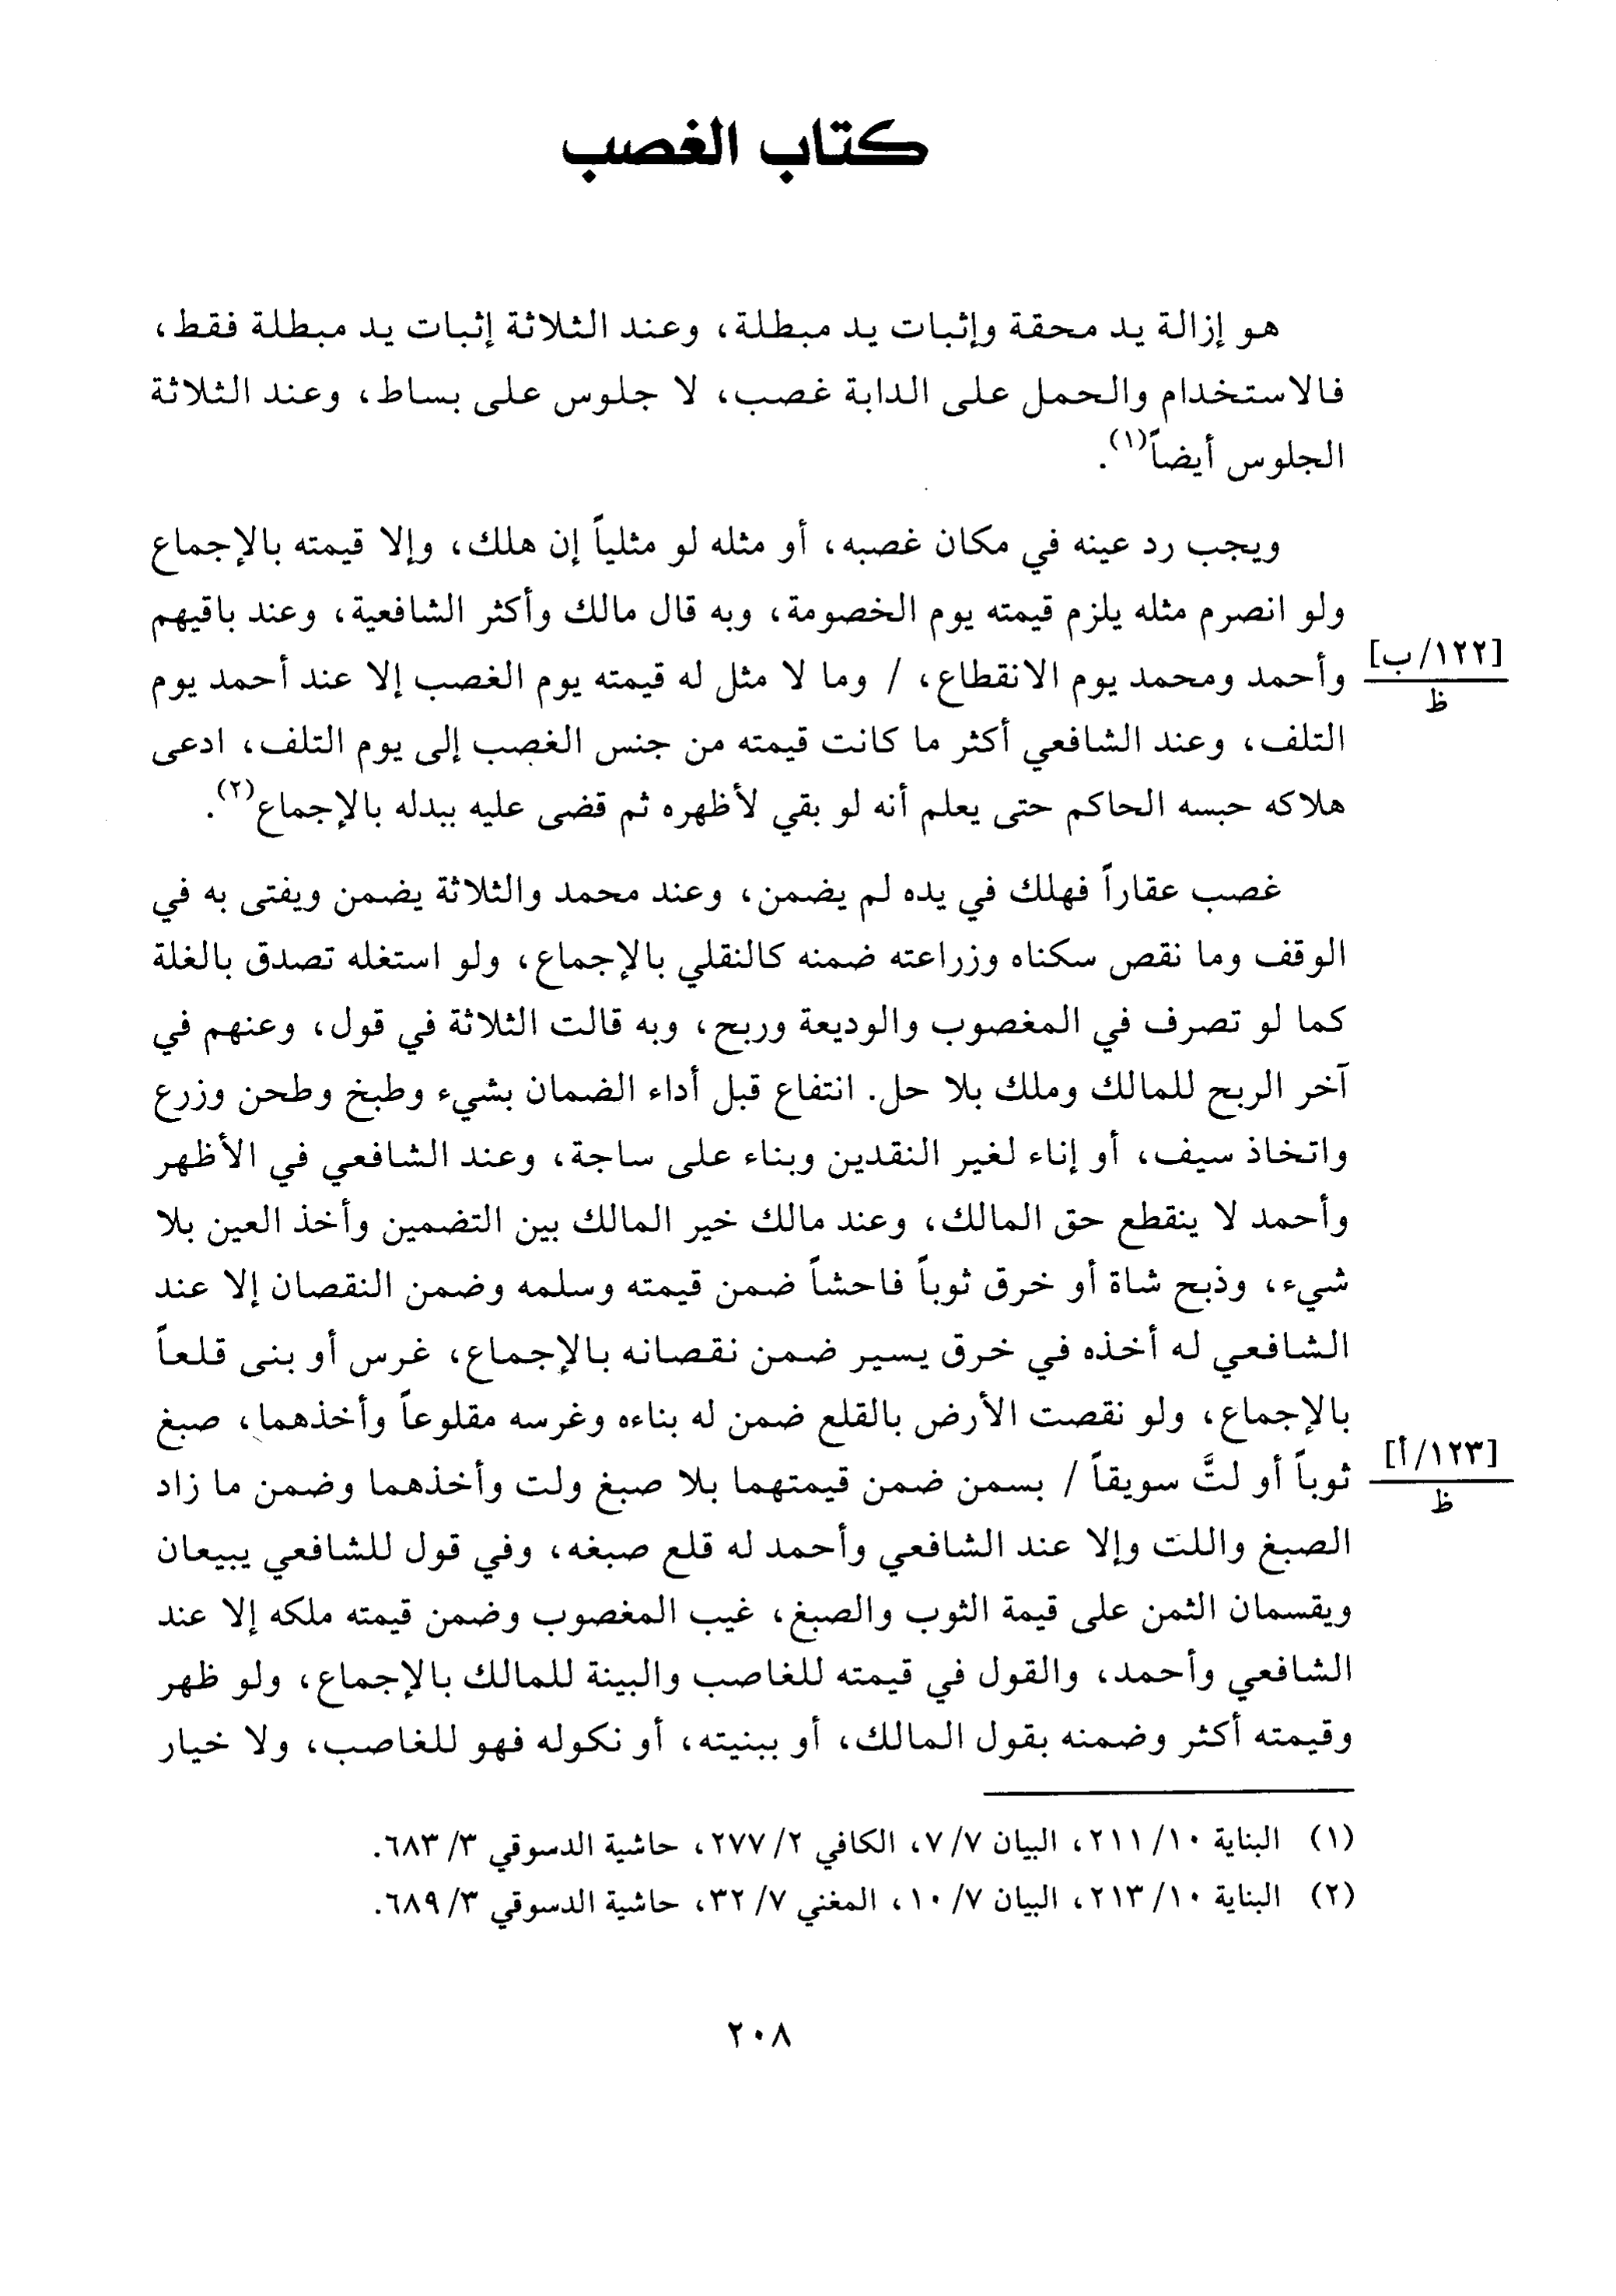 كتاب الغصب
هو إزالة يد محقة وإثبات يد مبطلة، وعند الثلاثة إثبات يد مبطلة فقط،
فالاستخدام والحمل على الدابة غصب، لا جلوس على بساط، وعند الثلاثة
الجلوس أيضاً(١).
ويجب رد عينه في مكان غصبه، أو مثله لو مثلياً إن هلك، وإلا قيمته بالإجماع
ولو انصرم مثله يلزم قيمته يوم الخصومة، وبه قال مالك وأكثر الشافعية، وعند باقيهم
[١٢٢/ب]
ظ
وأحمد ومحمد يوم الانقطاع، / وما لا مثل له قيمته يوم الغصب إلا عند أحمد يوم
التلف، وعند الشافعي أكثر ما كانت قيمته من جنس الغصب إلى يوم التلف، ادعى
هلاكه حبسه الحاكم حتى يعلم أنه لو بقي لأظهره ثم قضى عليه ببدله بالإجماع(٢).
غصب عقاراً فهلك في يده لم يضمن، وعند محمد والثلاثة يضمن ويفتى به في
الوقف وما نقص سكناه وزراعته ضمنه كالنقلي بالإجماع، ولو استغله تصدق بالغلة
كما لو تصرف في المغصوب والوديعة وربح، وبه قالت الثلاثة في قول، وعنهم في
آخر الربح للمالك وملك بلا حل. انتفاع قبل أداء الضمان بشيء وطبخ وطحن وزرع
واتخاذ سيف، أو إناء لغير النقدين وبناء على ساجة، وعند الشافعي في الأظهر
وأحمد لا ينقطع حق المالك، وعند مالك خير المالك بين التضمين وأخذ العين بلا
شيء، وذبح شاة أو خرق ثوباً فاحشاً ضمن قيمته وسلمه وضمن النقصان إلا عند
الشافعي له أخذه في خرق يسير ضمن نقصانه بالإجماع، غرس أو بنى قلعاً
بالإجماع، ولو نقصت الأرض بالقلع ضمن له بناءه وغرسه مقلوعاً وأخذهما، صبغ
[١٢٣/أ]
ظ
ثوباً أو لتَّ سويقاً / بسمن ضمن قيمتهما بلا صبغ ولت وأخذهما وضمن ما زاد
الصبغ واللت وإلا عند الشافعي وأحمد له قلع صبغه، وفي قول للشافعي يبيعان
ويقسمان الثمن على قيمة الثوب والصبغ، غيب المغصوب وضمن قيمته ملكه إلا عند
الشافعي وأحمد، والقول في قيمته للغاصب والبينة للمالك بالإجماع، ولو ظهر
وقيمته أكثر وضمنه بقول المالك، أو ببنيته، أو نكوله فهو للغاصب، ولا خيار
(١) البناية ٢١١/١٠، البيان ٧/٧، الكافي ٢٧٧/٢، حاشية الدسوقي ٦٨٣/٣.
(٢) البناية ٢١٣/١٠، البيان ١٠/٧، المغني ٣٢/٧، حاشية الدسوقي ٦٨٩/٣.
٢٠٨